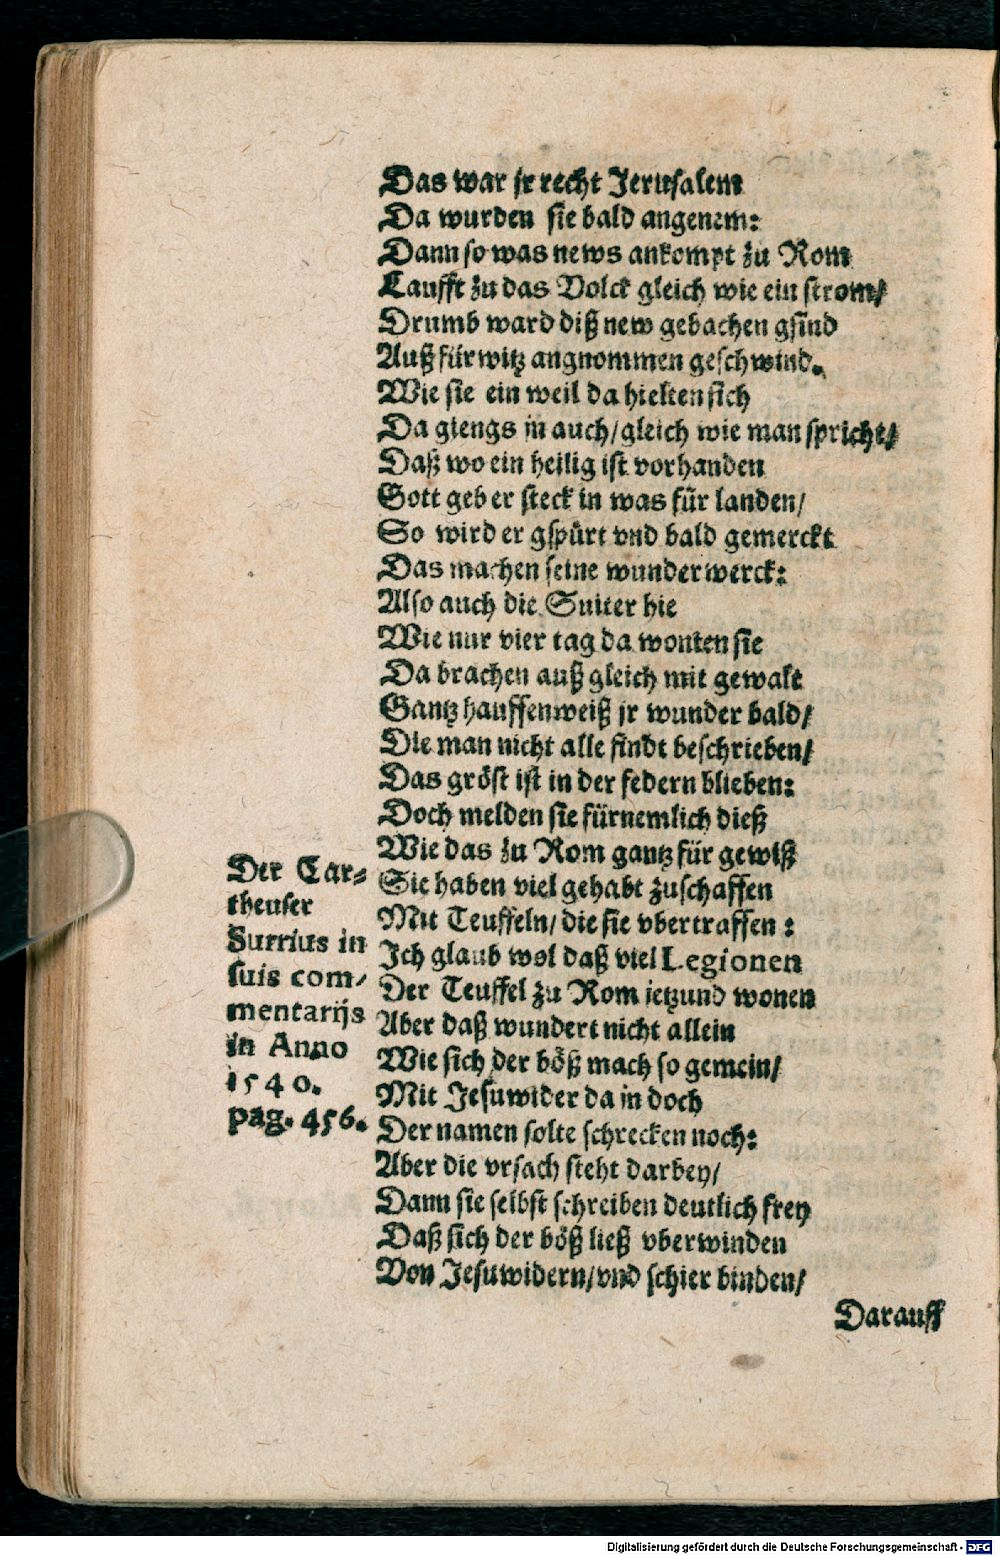 Das war jr recht Jerusalem
Da wurden sie bald angenem:
Dann so was news ankompt zu Rom
Laufft zu das Volck gleich wie ein strom/
Drumb ward diß new gebachen gsind
Auß fürwitz angnommen geschwind.
Wie sie ein weil da hielten sich
Da giengs in auch/gleich wie man spricht/
Daß wo ein heilig ist vorhanden
Gott geb er steck in was für landen/
So wird er gspürt vnd bald gemerckt
Das machen seine wunderwerck:
Also auch die Suiter hie
Wie nur vier tag da wonten sie
Da brachen auß gleich mit gewalt
Gantz hauffenweiß jr wunder bald/
Die man nicht alle findt beschrieben/
Das gröst ist in der federn blieben:
Doch melden sie fürnemlich dieß
Wie das zu Rom gantz für gewiß
Sie haben viel gehabt zuschaffen
Mit Teuffeln/die sie vbertraffen:
Ich glaub wol daß viel Legionen
Der Teuffel zu Rom jetzund wonen
Aber daß wundert nicht allein
Wie sich der böß mach so gemein/
Mit Jesuwider da in doch
Der namen solte schrecken noch:
Aber die vrsach steht darbey/
Dann sie selbst schreiben deutlich frey
Daß sich der böß ließ vberwinden
Von Jesuwidern/vnd schier binden/
Darauff
Der Car-
theuser
Surrius in
suis com-
mentarijs
in Anno
1540.
pag. 456.
Digitalisierung gefördert durch die Deutsche Forschungsgemeinschaft - DFG